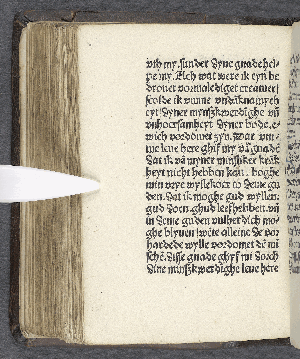 vth my. sunder dyne gnade hel-
pe my. Ach wat were ik eyn be
drouet vormaledyget creatuer
scolde ik vmme vndankna mych
eyt dyner mynschwerdighe vn
vnhorsamheyt dyner bode. e-
wich vordomet zyn. Wat vm-
me leue here ghif my vā gnadē
dat ik vā myner mynsliker krāk
heyt nicht hebben kan. boghe
myn vrye wyllekore to deme gu
den. dat ik moghe gud wyllen.
gud doen. ghud leef hebben. vñ
in deme guden vulherdich mo-
ghe blyuen wēte alleine de vor
hardede wylle vordomet dē mi
schē. dysse gnade ghyf mi doch
dine mynschwerdighe leue here